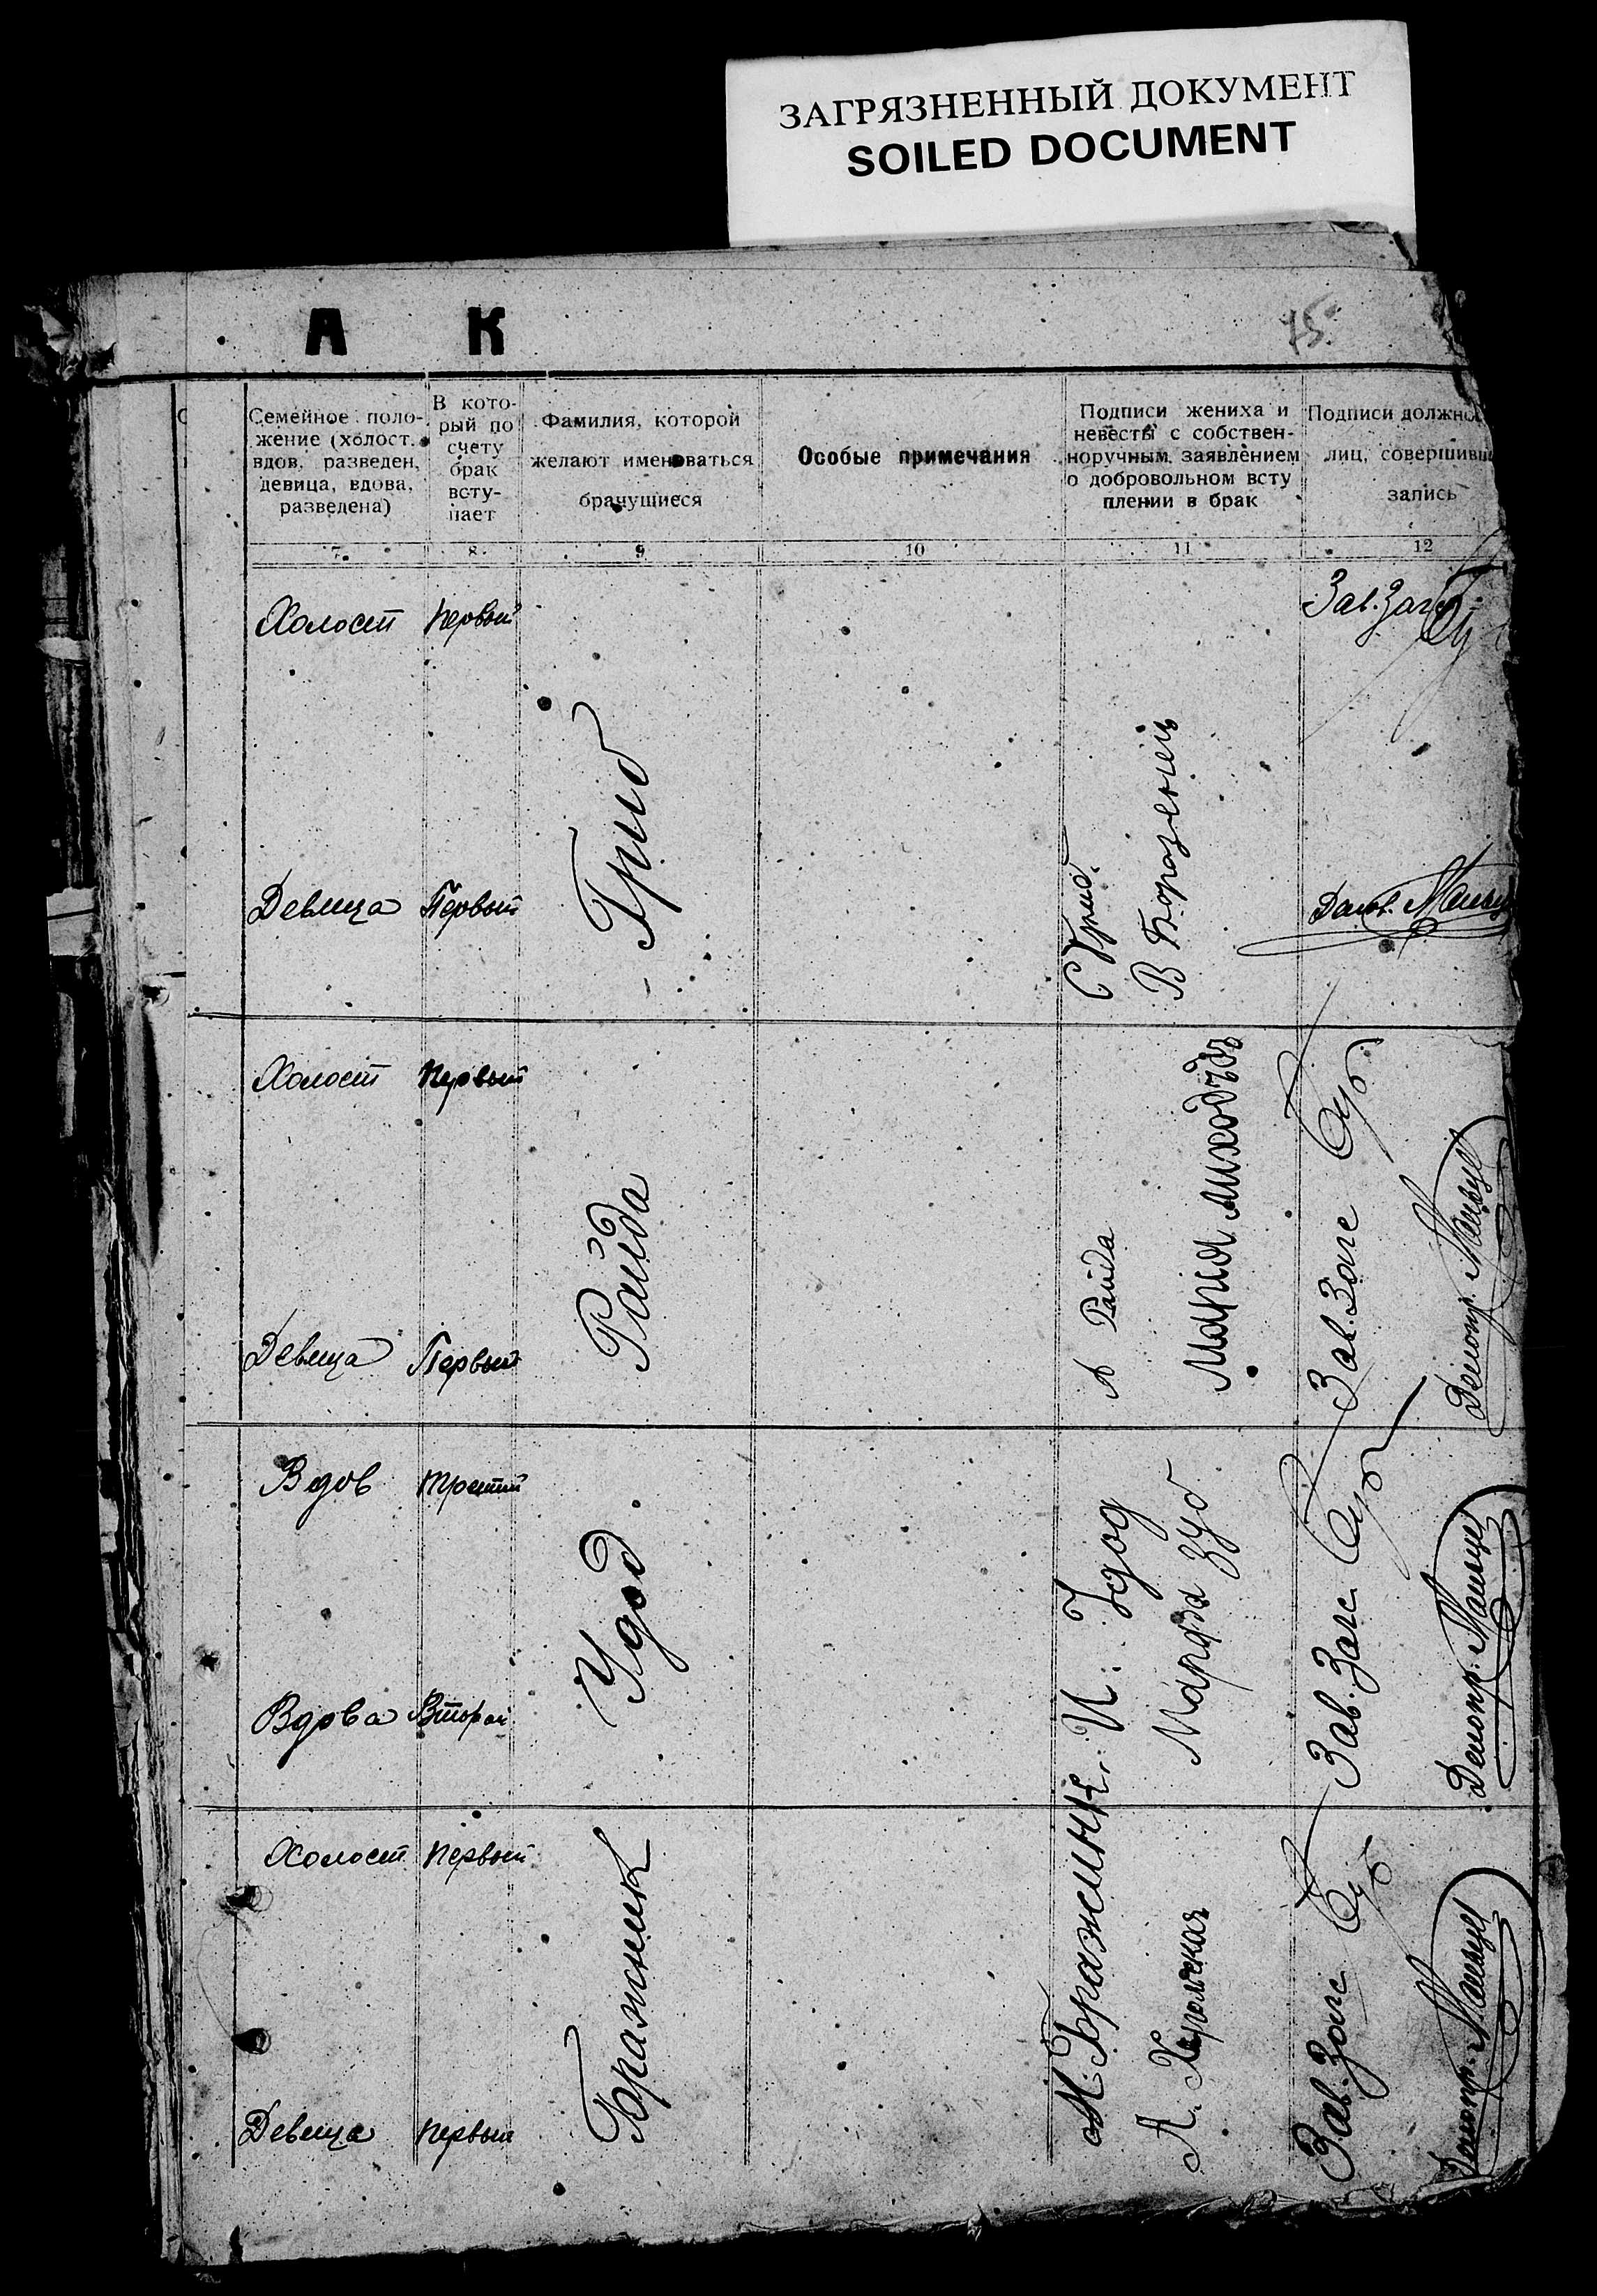 ЗАГРЯЗНЕННЫЙ ДОКУМЕНТ
SOILED DOCUMENT
А К
75
Семейное поло-
жение (холост.
вдов, разведен,
девица, вдова,
разведена)
В кото-
рый по
счету
брак
всту-
пает
Фамилия, которой
желают именоваться
брачущиеся
Особые примечания
Подписи жениха и
невесты с собствен-
норучным, заявлением
о добровольном всту
плении в брак
Подписи должно
лиц, совершивш
запись
7
8
9
10
11
12
Холост Первый
Девица Первый
Гриб
С Гриб.
В Борозенець
Зав. Загс
Холост Первый
Девица Первый
Райда
А Райда
Мария
Зав. Загс
Делопр.
Вдов Третий
Вдова Второй
Удод
И. Удод
Марфа Зуб
Зав. Загс
Делопр.
Холост Первый
Девица Первый
Бражник
М. Бражник
А.
Зав. Загс
Делопр.